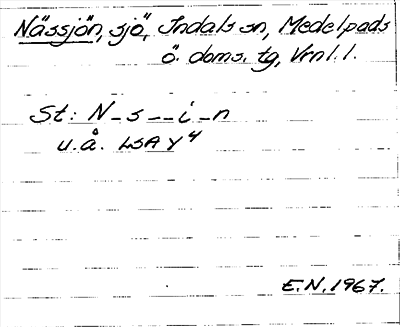 Nässjön, sjö, Indals sn, Medelpads
ö. doms. tg, Vrnl.l.
St: N–s––i–n
u.å. LSA Y4
E.N. 1967.